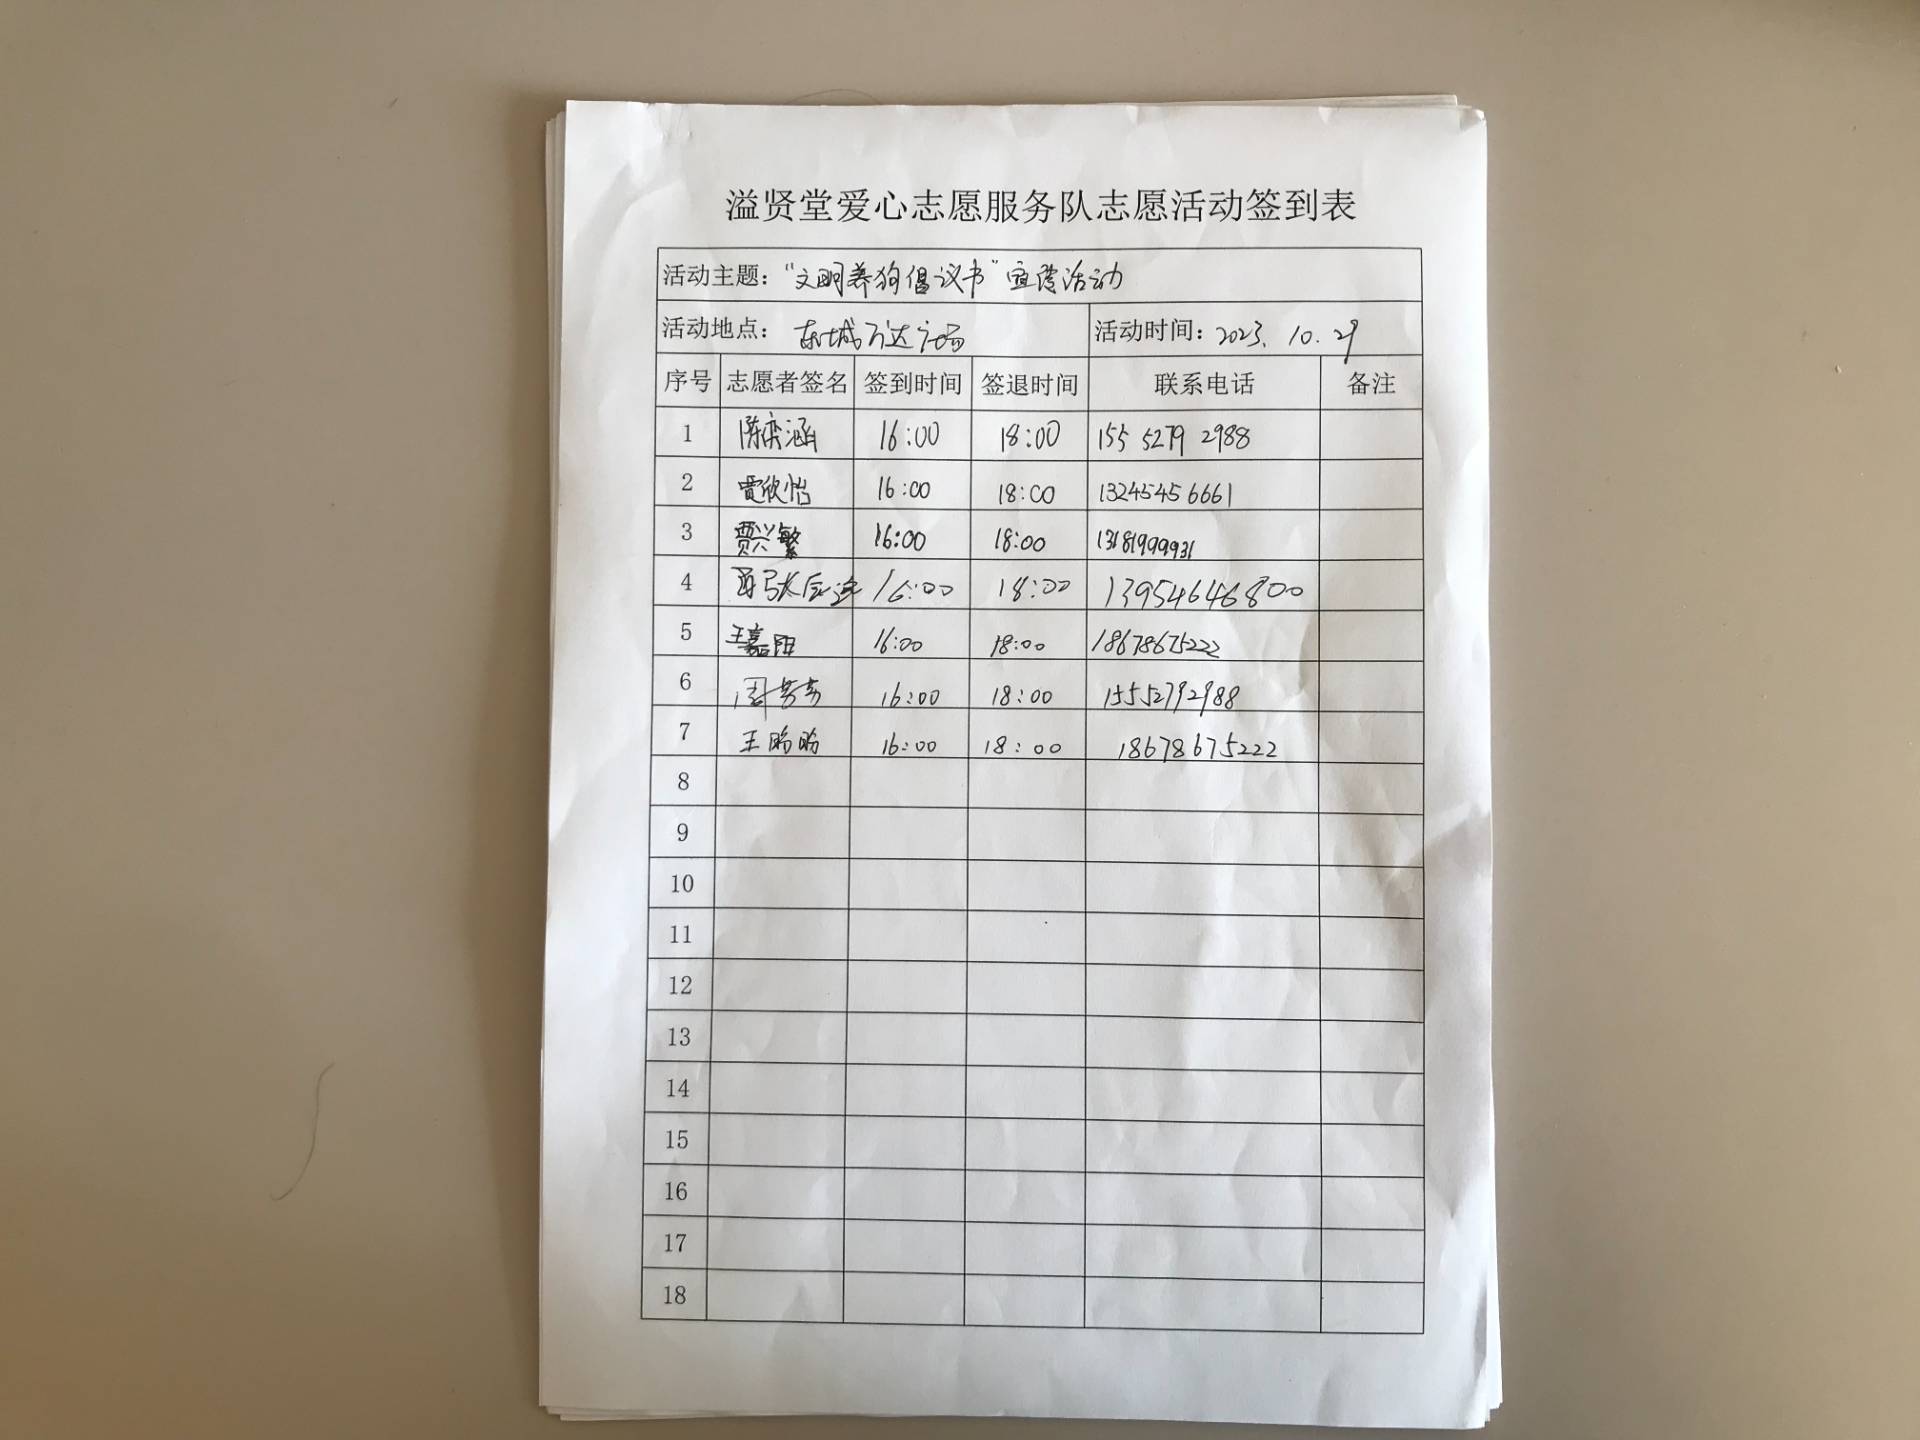 溢贤堂爱心志愿服务队志愿活动签到表
活动主题：“文明养狗倡议书”宣传活动
活动地点： 东城万达广场 活动时间：2023.10.29
序号 志愿者签名 签到时间 签退时间 联系电话 备注
1 陈奕涵 16:00 18:00 155 5279 2988
2 贾欣怡 16:00 18:00 13245456661
3 贾兴繁 16:00 18:00 13181999931
4 16:00 18:00 13954646800
5 王嘉阳 16:00 18:00 18678675222
6 周芳芳 16:00 18:00 15552792988
7 王盼盼 16:00 18:00 18678675222
8
9
10
11
12
13
14
15
16
17
18